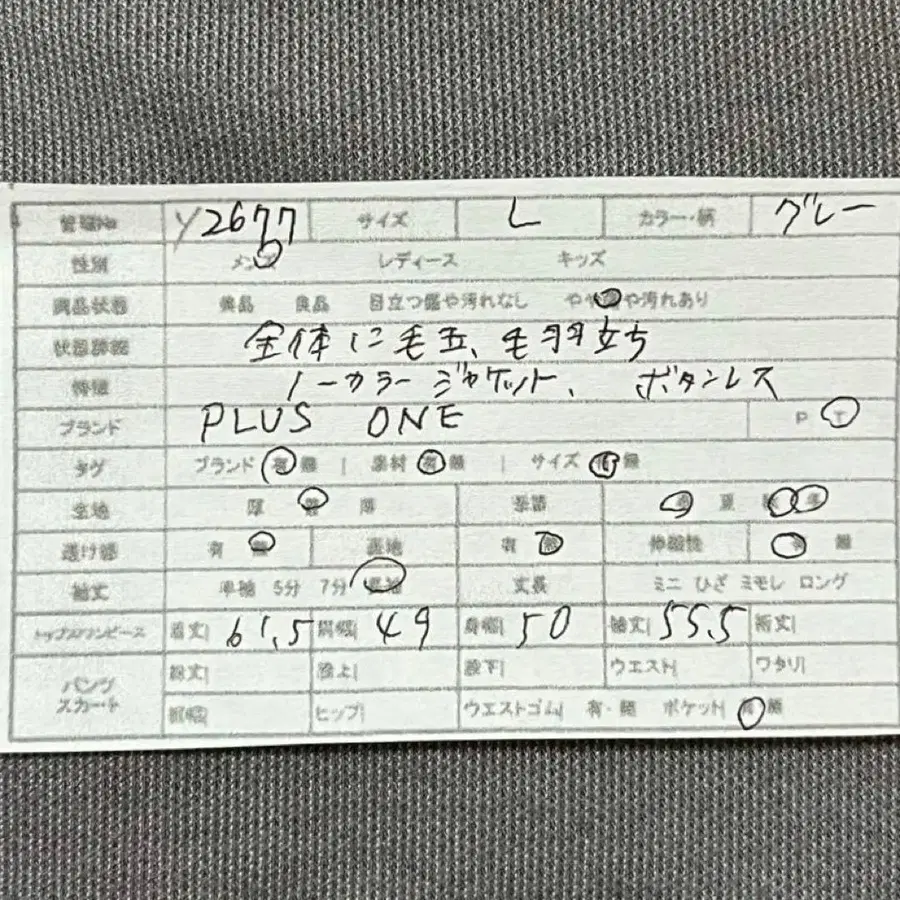 管理No Y2677 サイズ L カラー・柄 グレー
性別 メンズ レディース キッズ
商品状態 美品 良品 目立つ傷や汚れなし やや傷や汚れあり
状態詳細 全体に毛玉、毛羽立ち
特徴 ノーカラージャケット、ボタンレス
ブランド PLUS ONE P T
タグ ブランド 有 無 | 素材 有 無 | サイズ 有 無
生地 厚 普 薄 季節 春 夏 秋 冬
透け感 有 無 裏地 有 無 伸縮性 有 無
袖丈 半袖 5分 7分 長袖 丈長 ミニ ひざ ミモレ ロング
トップス/ワンピース 着丈| 61,5 肩幅| 49 身幅| 50 袖丈| 55,5 裄丈|
パンツ スカート 総丈| 股上| 股下| ウエスト| ワタリ|
裾幅| ヒップ| ウエストゴム| 有・無 ポケット| 有 無